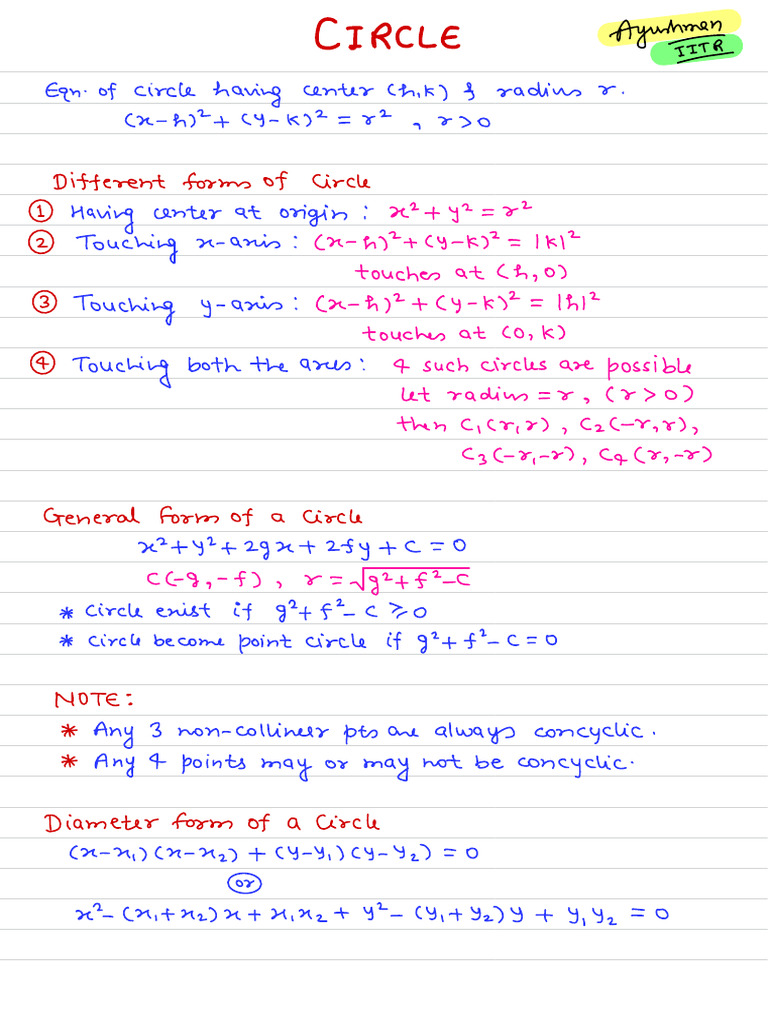 CIRCLE
Ayushman
IITR
Eqn. of circle having center (h,k) & radius r.
(x-h)²+(y-k)² = r² , r>0
Different forms of Circle
① Having center at origin : x²+y² = r²
② Touching x-axis : (x-h)²+(y-k)² = |k|²
touches at (h,0)
③ Touching y-axis : (x-h)²+(y-k)² = |h|²
touches at (0,k)
④ Touching both the axes : 4 such circles are possible
Let radius = r, (r>0)
then C₁(r,r) , C₂(-r,r),
C₃(-r,-r), C₄(r,-r)
General form of a Circle
x²+y²+2gx+2fy+c = 0
C(-g,-f) , r = √(g²+f²-c)
* Circle exist if g²+f²-c ≥ 0
* Circle become point circle if g²+f²-c = 0
NOTE:
* Any 3 non-collineer pts are always concyclic.
* Any 4 points may or may not be concyclic.
Diameter form of a Circle
(x-x₁)(x-x₂) + (y-y₁)(y-y₂) = 0
or
x²-(x₁+x₂)x+x₁x₂ + y²-(y₁+y₂)y + y₁y₂ = 0